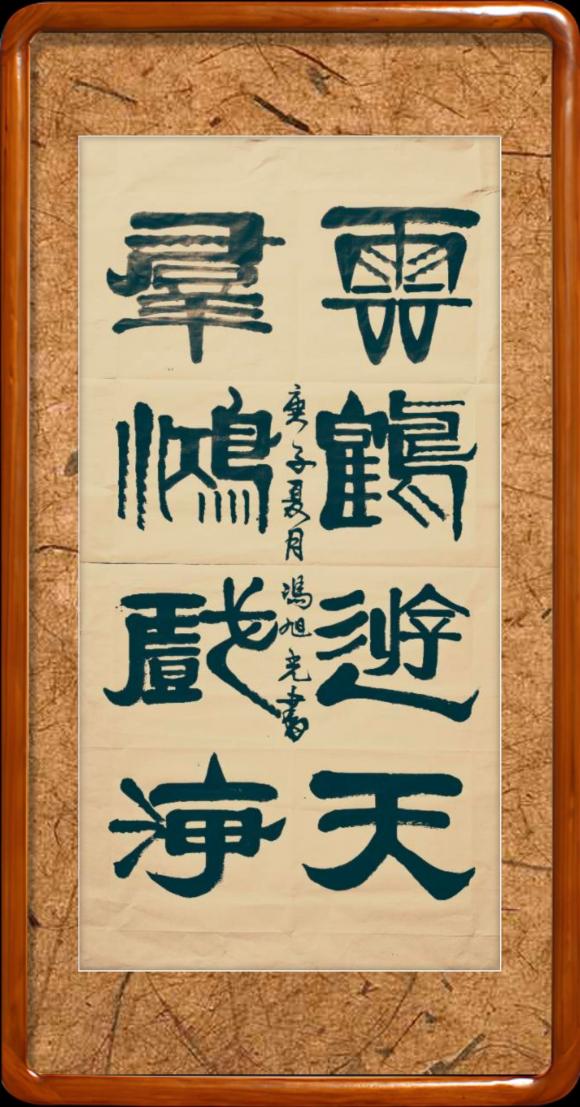 雲鶴遊天
羣鴻戲海
庚子夏月 馮旭光書